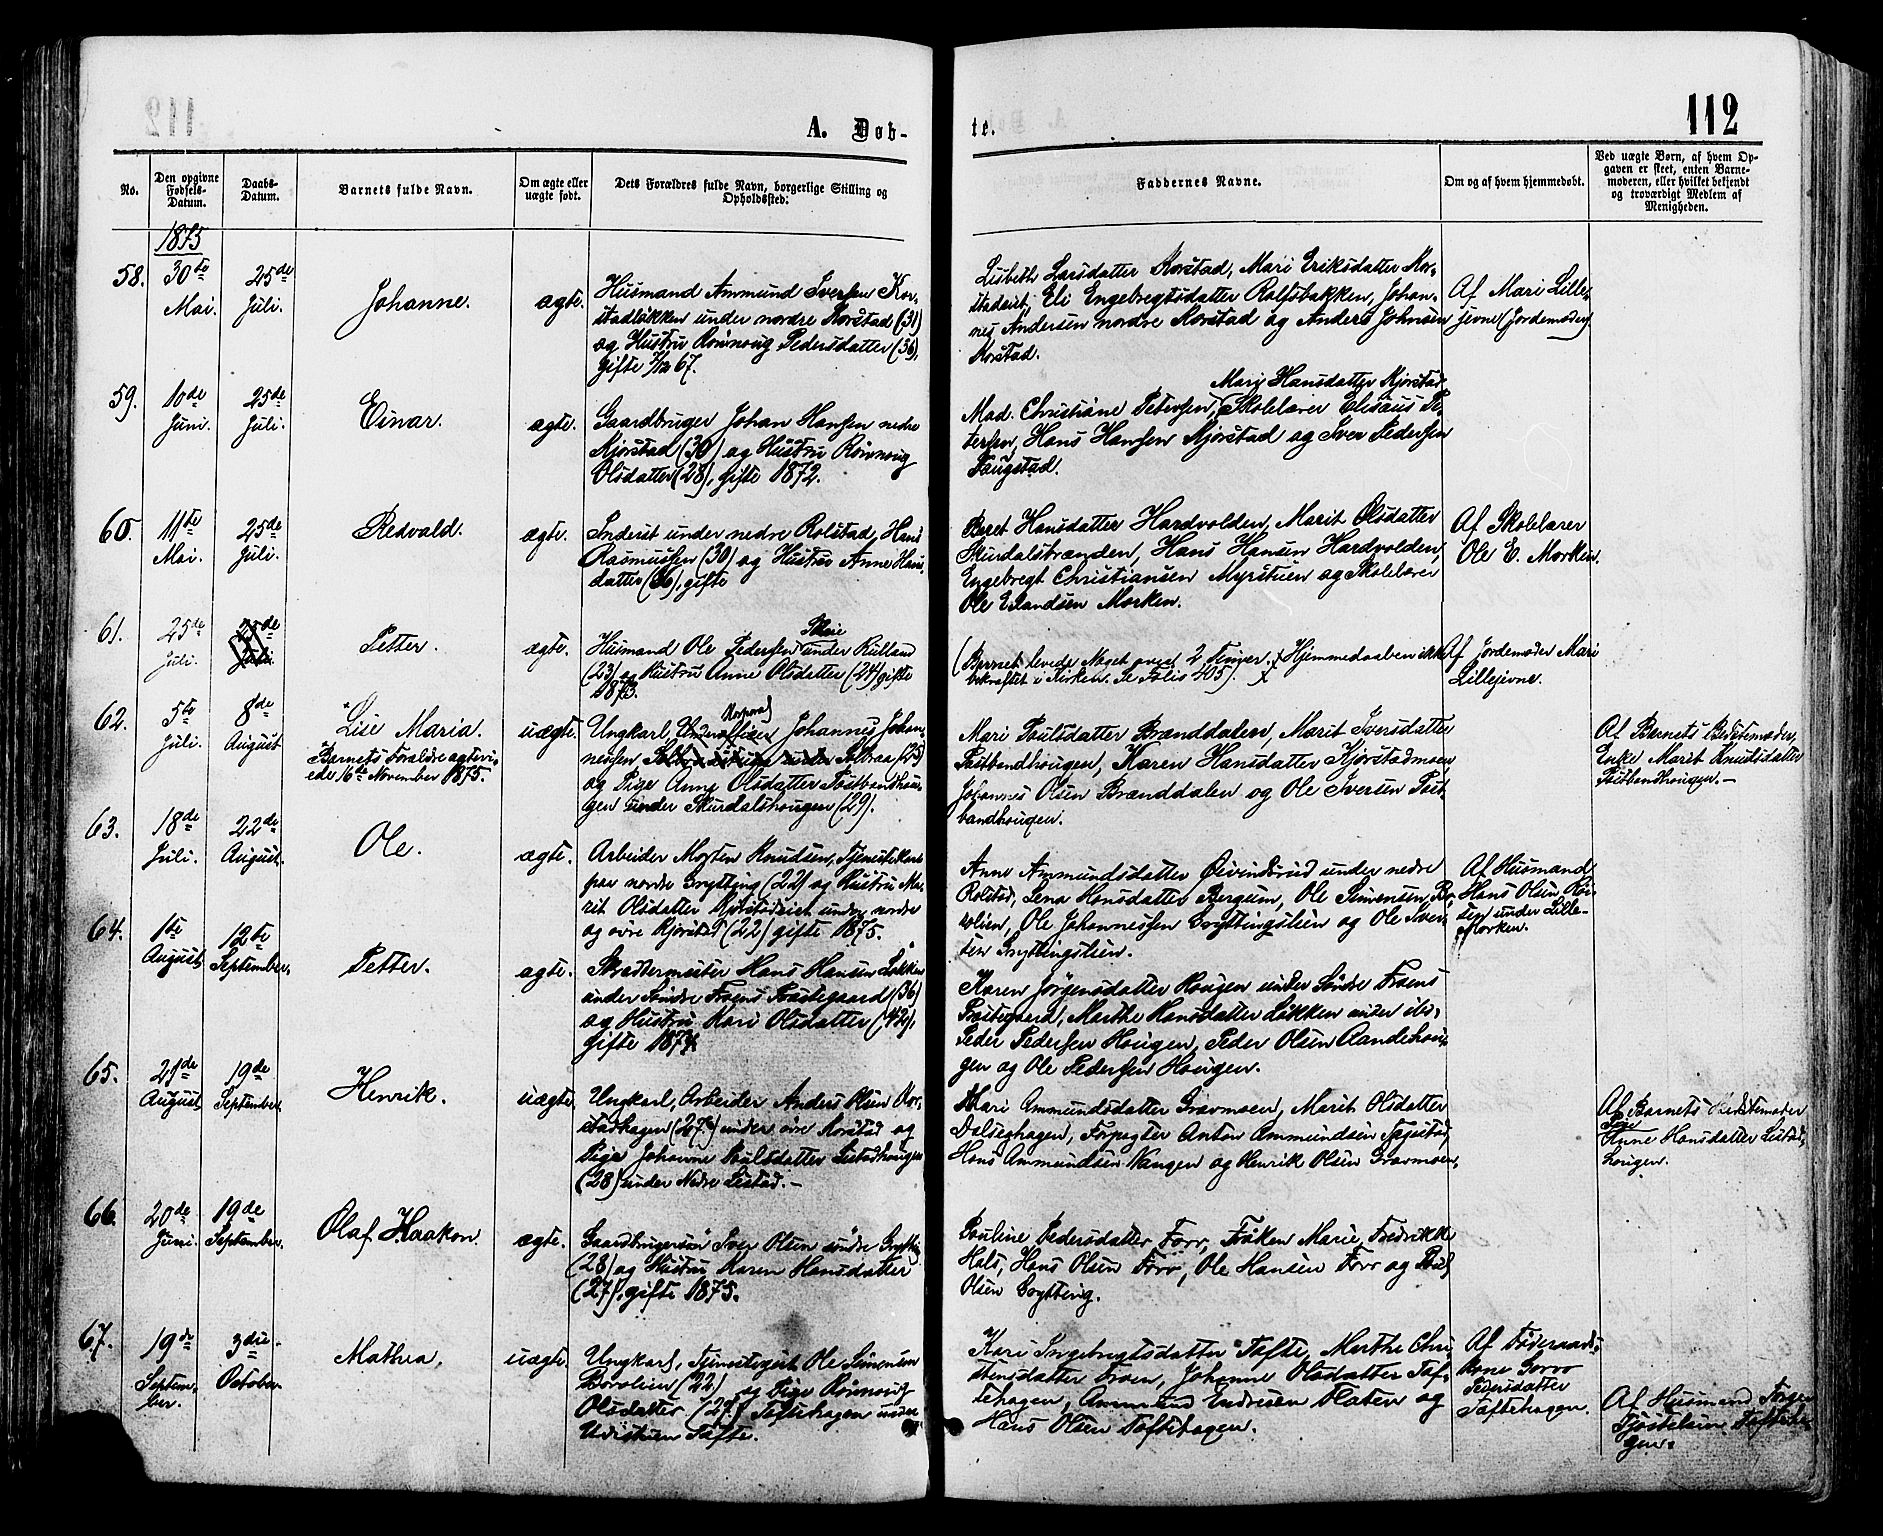 112
A. Døb-
te.
No.
Den opgivne Fødsels-Datum.
Daabs-Datum.
Barnets fulde Navn.
Om ægte eller uægte født.
Dets Forældres fulde Navn, borgerlige Stilling og Opholdssted.
Faddernes Navne.
Om og af hvem hjemmedøbt.
Ved uægte Børn, af hvem Opgaven er skeet, enten Barnemoderen, eller hvilket bekjendt og troværdigt Medlem af Menigheden.
1875
58.
30te Mai.
25de Juli.
Johanne.
ægte.
Husmand Ammund Iversen Kor-
stadløkken under nordre Korstad (31)
og Hustru Rønnoug Pedersdatter (36),
gifte 67.
Lisbeth Larsdatter Korstad, Mari Eriksdatter Kor-
stadeiet, Eli Engebregtsdatter Rolfsbakken, Johan-
nes Andersen nordre Korstad og Anders Johnsen
Korstad.
Af Mari Lille-
jevne (Jordemoder)
59.
10de Juni.
25de Juli.
Einar.
ægte.
Gaardbruger Johan Hansen nedre
Kjorstad (30) og Hustru Rønnoug
Olsdatter (28), gifte 1872.
Mari Hansdatter Kjorstad
Mad. Christiane Petersen, Skolelærer Elisæus Pe-
tersen, Hans Hansen Kjorstad og Iver Pedersen
Taugstad.
60.
11te Mai.
25de Juli.
Redvald.
ægte.
Inderst under nedre Rolstad, Hans
Rasmussen (30) og Hustru Anne Hans-
datter (36), gifte
Beret Hansdatter Hardvolden, Marit Olsdatter
Skurdalsbrænden, Hans Hansen Hardvolden,
Engebregt Christiansen Myrstuen og Skolelærer
Ole Erlandsen Morken.
Af Skolelærer
Ole E. Morken.
61.
25de Juli.
25de Juli.
Petter.
ægte.
Husmand Ole Pedersen under Rulland
(23) og Hustru Anne Olsdatter (24) gifte
1873.
(Barnet levede Noget over 2 Timer. Hjemmedaaben ikke
bekræftet i Kirken. Se Folio 405).
Af Jordemoder Mari
Lillejevne.
62.
5te Juli.
8de August
Lise Maria.
Barnets Forældre ægtevi-
ede 16de November 1875.
uægte.
Korporal
Ungkarl, Underofficer Johannes Johan-
nessen under Solbraa (25)
og Pige Anne Olsdatter Postbandhou-
gen under Skurdalshougen (29).
Mari Poulsdatter Brænddalen, Marit Iversdatter
Postbandhougen, Karen Hansdatter Kjorstadmoen
Johannes Olsen Brænddalen og Ole Iversen Post-
bandhougen.
Af Barnets Bedstemoder,
Enke Marit Knudsdatter
Postbandhougen.—
63.
18de Juli.
22de August.
Ole.
ægte.
Arbeider Morten Knudsen, Tjenestekarl
paa nordre Grytting (22) og Hustru Ma-
rit Olsdatter Kjorstadeiet under nordre
og øvre Kjorstad (22) gifte 1875.
Anne Ammundsdatter Øivindsrud under nedre
Rolstad, Lena Hansdatter Bergum, Ole Simensen Bo-
rolien, Ole Johannessen Gryttingslien og Ole Iver-
sen Gryttingslien.
Af Husmand
Hans Olsen Røi-
sen under Lille-
Morken.
64.
1te August
12te September.
Petter.
ægte.
Skreddermester Hans Hansen Løkken
under Søndre Froens Præstegaard (36)
og Hustru Kari Olsdatter (42),
gifte 1874.
Karen Jørgensdatter Hougen under Søndre Froens
Præstegaard, Marthe Hansdatter Løkken under ibd.
Peder Pedersen Hougen, Peder Olsen Aandehou-
gen og Ole Pedersen Hougen.
65.
21de August
19de September.
Henrik.
uægte.
Ungkarl, Arbeider Anders Olsen Kor-
stadhagen (27) under øvre Korstad og
Pige Johanne Poulsdatter Listadhougen
(28) under Nedre Listad.—
Mari Ammundsdatter Gravmoen, Marit Olsdatter
Dalseghagen, Forpagter Anton Ammundsen Fagestad,
Hans Ammundsen Vangen og Henrik Olsen Gravmoen.
Af Barnets Bedstemoder
Anne Hansdatter Listad-
hougen.
66.
20de Juni.
19de September.
Olaf Haakon.
ægte.
Gaardbrugersøn Iver Olsen søndre Grytting
(28) og Hustru Karen Hansdatter
(27), gifte 1875.
Pauline Pedersdatter Forr, Frøken Marie Fredrikke
Hals, Hans Olsen Forr, Ole Hansen Forr og Poul
Olsen Grytting.
67.
19de Septem-
ber.
3die October.
Mathea.
uægte.
Ungkarl, Tjenestegut Ole Simensen
Borolien (22) og Pige Rønnoug
Olsdatter (27) Toftehagen under
Tofte.
Kari Ingebregtsdatter Tofte, Marthe Chri-
stensdatter Froen, Johanne Olsdatter Tof-
tehagen, Ammund Endresen Platen og
Hans Olsen Toftehagen.
Af Føderaads-
kone
Pedersdatter
Toftehagen.
Af Husmand
Tofteha-
gen.